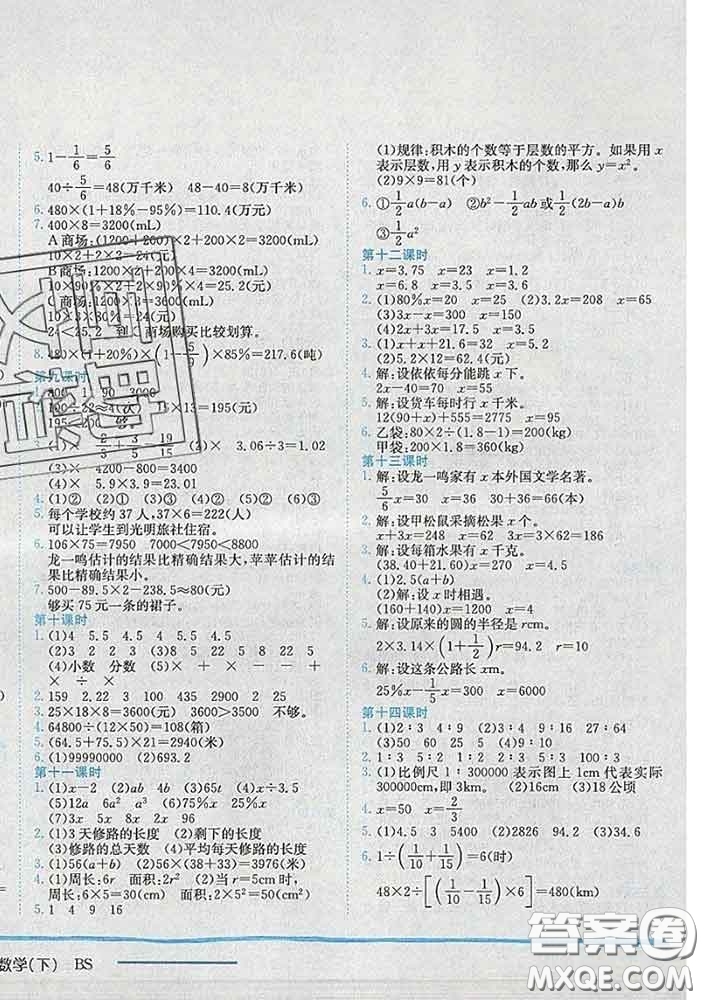 5. 1－1/6＝5/6
40÷5/6＝48(万千米) 48－40＝8(万千米)
6. 480×(1＋18%－95%)＝110.4(万元)
7. 400×8＝3200(mL)
A 商场:(1200＋200)×2＋200×2＝3200(mL)
10×2＋2×2＝24(元)
B 商场:1200×2＋200×4＝3200(mL)
10×90%×2＋2×90%×4＝25.2(元)
C 商场:1200×3＝3600(mL)
10×3×80%＝24(元)
24＜25.2 到 C 商场购买比较划算。
8. 480×(1＋20%)×(1－5/9)×85%＝217.6(吨)
第九课时
90 3000
195(元)
195＜200
(2)× 3.06÷3＝1.02
(3)× 4200－800＝3400
(4)× 5.9×3.9＝23.01
4. (1)② (2)② (3)① (4)③ (5)② (6)③
5. 每个学校约 37 人,37×6＝222(人)
可以让学生到光明旅社住宿。
6. 106×75＝7950 7000＜7950 7950＜8800
龙一鸣估计的结果比精确结果大,苹苹估计的结
果比精确结果小。
7. 500－89.5×2－245.5＝75.5＞80(元)
够买 75 元一条的裙子。
第十课时
1. (1)4 5.5 4.5 4 5.5 4.5
2 3 (2)138 (3)8 15 22 8 22 15
(4)小数 分数 (5)× ＋ × － ＋
× ÷ ×
2. 159 2.22 3 100 435 2900 2 25
3. 25×18×8＝3600(元) 3600＞3500 不够。
4. 64800÷(12×50)＝108(箱)
5. (64.5＋75.5)×21＝2940(米)
6. (1)99990000 (2)693.2
第十一课时
1. (1)x－2 (2)ab 4b (3)65t (4)x÷3.5
(5)12a 6a² a³ (6)5x＋8x 5x－8x
(7)3x 5x 8x 2x 96
2. (1)3 天修路的长度 (2)剩下的长度
(3)修路的总天数 (4)平均每天修路的长度
3. (1)56(a＋b) (2)56×(38＋33)＝3976(棵)
4. (1)周长:6r 面积:2r² (2)当 r＝5cm 时,
周长:6×5＝30(cm) 面积:2×5²＝50(cm²)
5. 1 4 9 16
(1)规律:积木的个数等于层数的平方。如果用 x
表示层数,用 y 表示积木的个数,那么 y＝x²。
(2)9×9＝81(个)
6. ①1/2a(b－a) ②b²－1/2ab 或1/2(2b－a)b
③1/2a²
第十二课时
1. x＝3.75 x＝23 x＝1.2
x＝6.8 x＝3 x＝3.9
2. (1)80%x＝20 x＝25 (2)3.2x＝208 x＝65
(3)3x－x＝300 x＝150
(4)(2＋3)x＝17.5 x＝3.5
3. (1)x÷5.2＝10 x＝52
(2)5.2×12＝62.4(元)
4. 解:设依依每分能跳 x 下。
5. 解:设货车每时行 x 千米。
12(90＋x)＋555＝2775 x＝95
6. 乙袋:80×2÷(1.8－1)＝200(kg)
甲袋:200×1.8＝360(kg)
第十三课时
1. 解:设龙一鸣家有 x 本外国文学名著。
5/6x＝30 x＝36 30＋36＝66(本)
2. 解:设甲松鼠采摘松果 x 个。
x＋3x＝248 x＝62 3x＝3×62＝186
3. 解:设每箱水果有 x 千克。
(38.40＋21.60)x＝1200 x＝20
4. (1)2.5(a＋b)
(2)解:设 x 时相遇。
(160＋140)x＝1200 x＝4
5. 解:设原来的圆的半径是 rcm。
2×3.14×(1＋1/2)r＝94.2 r＝10
6. 解:设这条公路长 xm。
25%x－1/5x＝300 x＝6000
第十四课时
1. (1)2∶3 4∶9 (2)3∶4 9∶16 27∶64
(3)50 60 25 5 (4)4∶5
2. 1∶3 5∶2 1∶2 3∶5 1∶5 100∶3
3. (1)比例尺 1∶300000 表示图上 1cm 代表实际
300000cm,即 3km。 (2)16cm (3)18 公顷
4. x＝50 x＝2/3
5. (1)4.5 3 5400 (2)2826 94.2 (3)34.6
6. 1÷(1/10＋1/15)＝6(时)
48×2÷[(1/10－1/15)×6]＝480(km)
数学(下) BS
答案圈
MXQE.COM